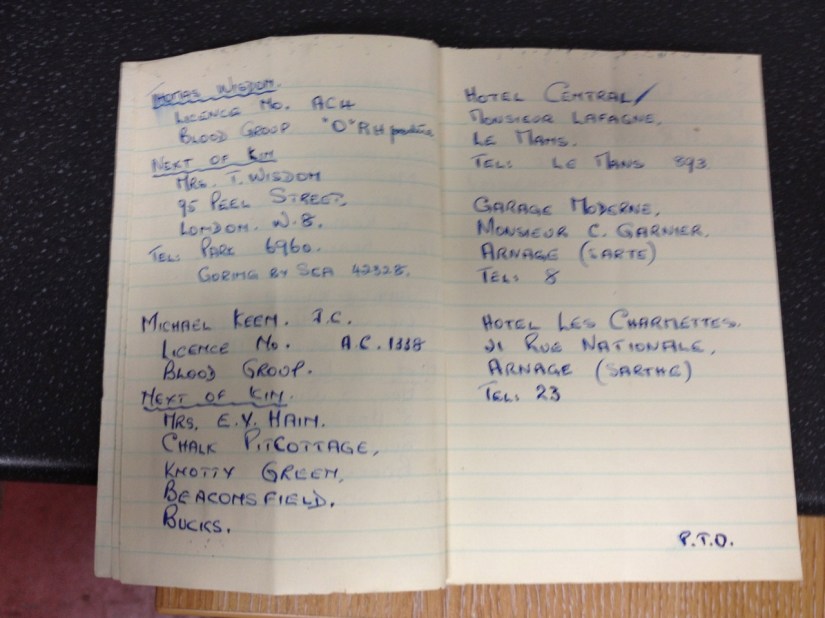 THOMAS WISDOM.
LICENCE NO. ACH
BLOOD GROUP "O" RH positive
NEXT OF KIN
MRS. T. WISDOM
95 PEEL STREET,
LONDON. W.8.
TEL: PARK 6960.
GORING BY SEA 42328.
MICHAEL KEEN. J.C.
LICENCE NO. A.C. 1338
BLOOD GROUP.
NEXT OF KIN.
MRS. E.V. HAIN.
CHALK PIT COTTAGE,
KNOTTY GREEN,
BEACONSFIELD,
BUCKS.
HOTEL CENTRAL
MONSIEUR LAFAGNE,
LE MANS.
TEL: LE MANS 893
GARAGE MODERNE,
MONSIEUR C. GARNIER,
ARNAGE (SARTE)
TEL: 8
HOTEL LES CHARMETTES.
21 RUE NATIONALE,
ARNAGE (SARTHE)
TEL: 23
P.T.O.